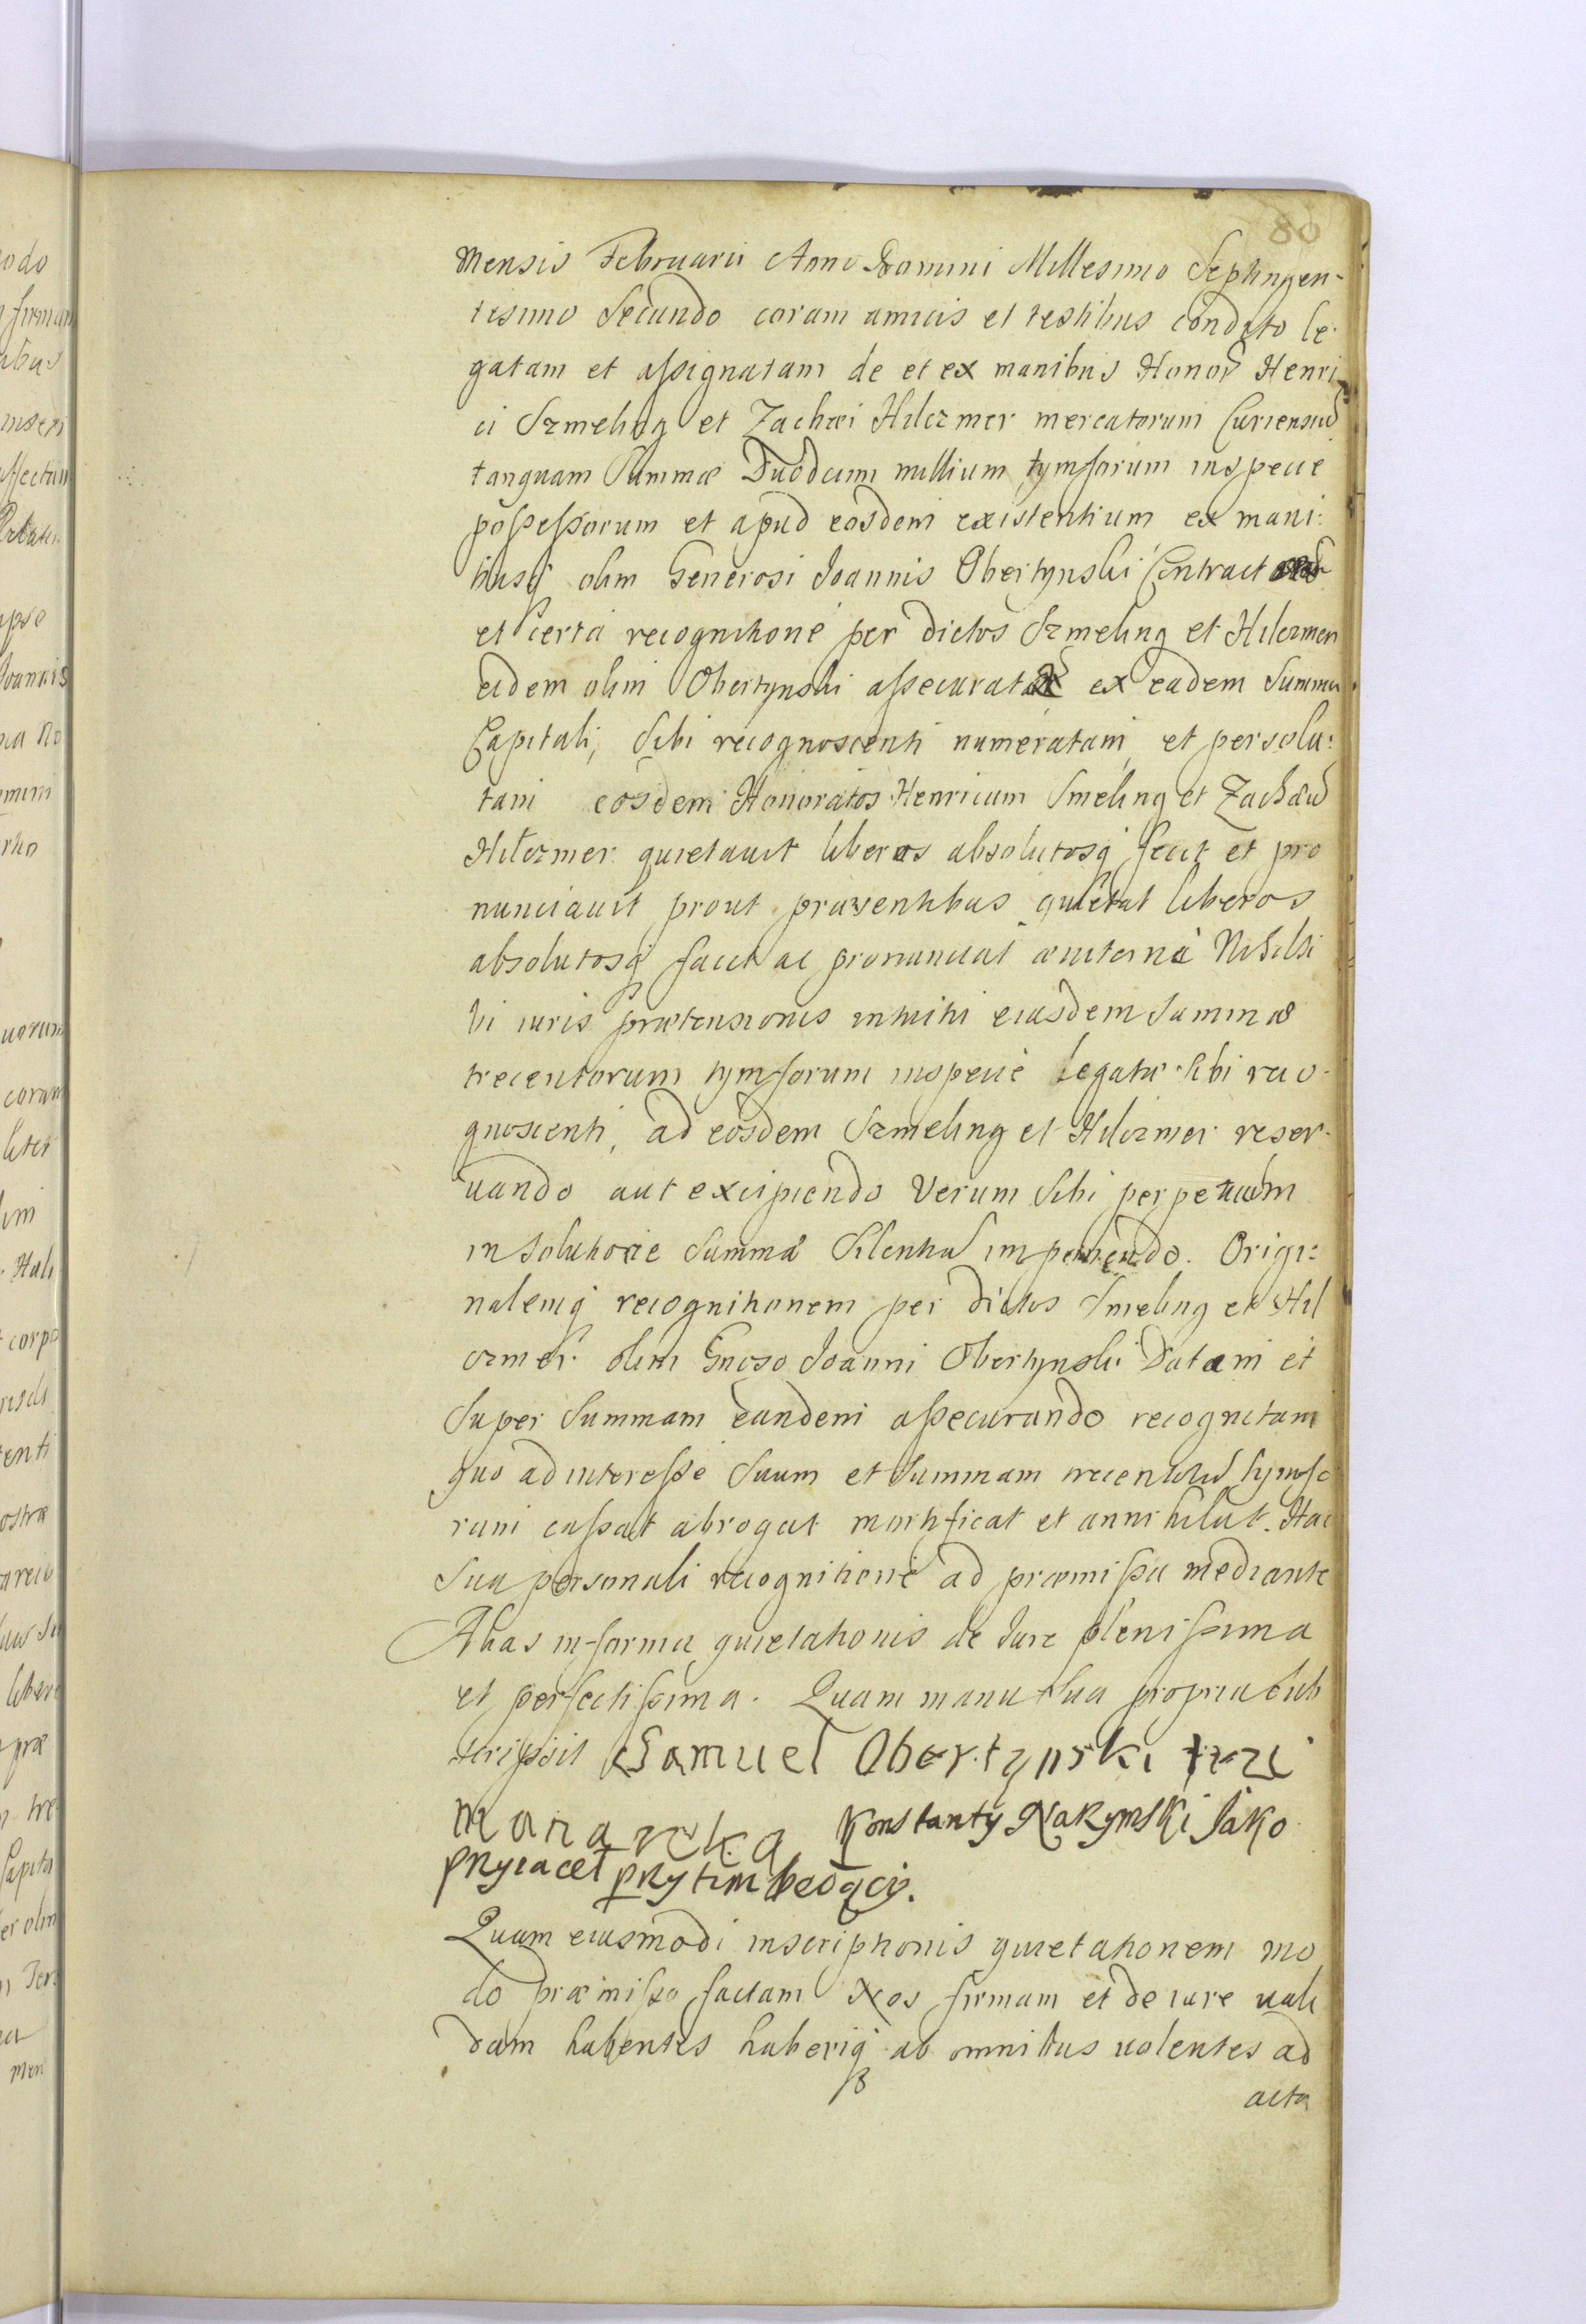 80
Mensis Februarii Anno Domini Millesimo Septingen-
tesimo Secundo coram amicis et testibus condito le-
gatam et assignatam de et ex manibus Honor Henri
ci Szmeling et Zachæi Hilczmer mercatorum
tanquam Summæ Duodecim millium tymforum inspecie
possessorum et apud eosdem existentium ex mani:
busq olim Generosi Joannis Obertynski Contract
et certa recognitione per dictos Szmeling et Hilczmer
eidem olim Obertynski ex eadem Summa
Capitali, Sibi recognoscenti numeratam, et persolu:
tam eosdem Honoratos Henricum Smeling et Zachæu
Hilczmer quietauit liberos absolutosq fecit et pro
nunciauit prout præsentibus quietat liberos
absolutosq facit ac pronunciat æuiterne Nihil Si
bi iuris prætensionis intuitu eiusdem Summæ
trecentorum tymforum inspecie legatæ Sibi reco-
gnoscenti, ad eosdem Szmeling et Hilczmer reser-
uando aut excipiendo Verum Sibi perpetuum
in Solutione Summa Silentiu imponendo. Origi:
nalemq recognitionem per dictos Smeling et Hil
czmer olim Gnoso Joanni Obertynski Datam et
Super Summam eandem assecurando recognitam
quo ad interesse Suum et Summam trecentoru tymfo
rum cassat abrogat mortificat et annihilat. Hac
Sua personali recognitione ad præmissa mediante
Alias in forma quietationis de Jure plenissima
et perfectissima. Quam manu Sua propria Sub
scripsit Samuel Obertynski
Konstanty Nakymski Jako
pryiacel prytim bedący.
Quam eiusmodi inscriptionis quietationem mo
do præmisso factam Nos firmam et de iure uali
dam habentes haberiq ab omnibus uolentes ad
acta